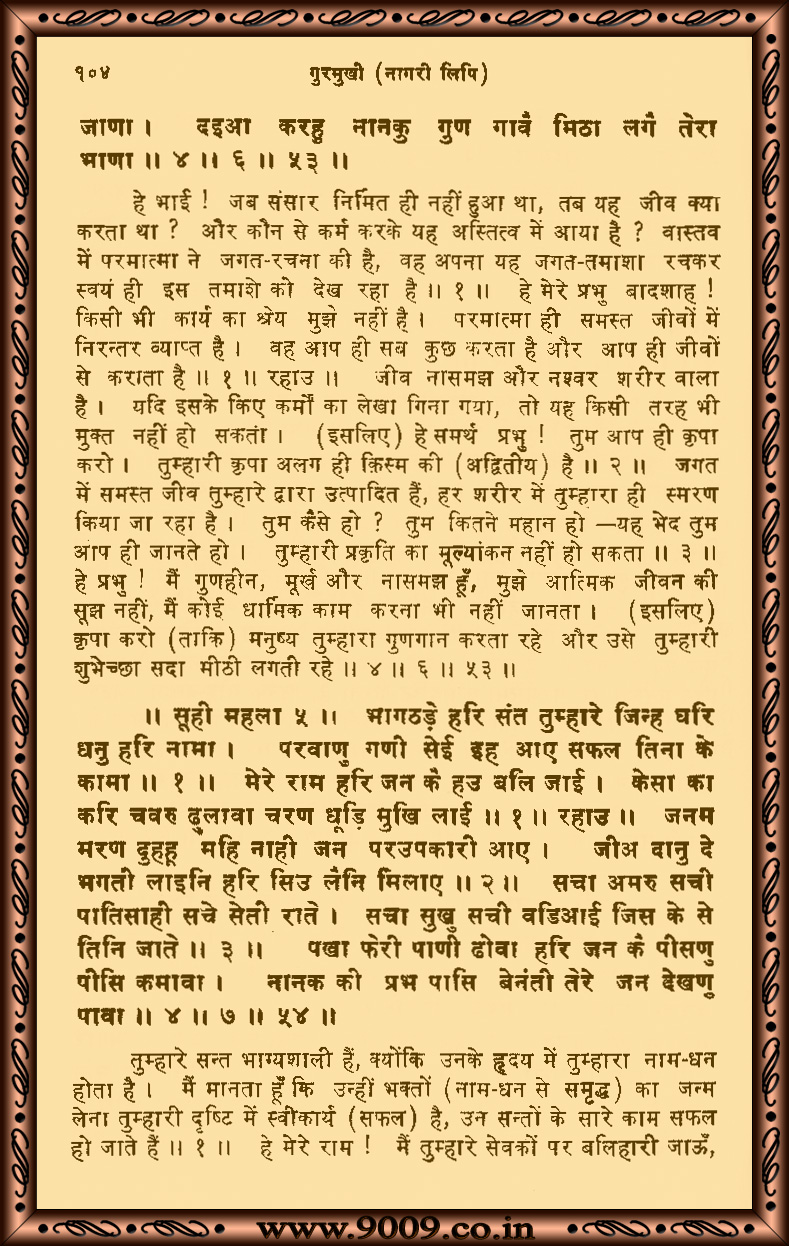 १०४ गुरमुखी (नागरी लिपि)
जाणा । दइआ करहु नानकु गुण गावै मिठा लगै तेरा
भाणा ॥ ४ ॥ ६ ॥ ५३ ॥
हे भाई ! जब संसार निर्मित ही नहीं हुआ था, तब यह जीव क्या
करता था ? और कौन से कर्म करके यह अस्तित्व में आया है ? वास्तव
में परमात्मा ने जगत-रचना की है, वह अपना यह जगत-तमाशा रचकर
स्वयं ही इस तमाशे को देख रहा है ॥ १ ॥ हे मेरे प्रभु बादशाह !
किसी भी कार्य का श्रेय मुझे नहीं है । परमात्मा ही समस्त जीवों में
निरन्तर व्याप्त है । वह आप ही सब कुछ करता है और आप ही जीवों
से कराता है ॥ १ ॥ रहाउ ॥ जीव नासमझ और नश्वर शरीर वाला
है । यदि इसके किए कर्मों का लेखा गिना गया, तो यह किसी तरह भी
मुक्त नहीं हो सकता । (इसलिए) हे समर्थ प्रभु ! तुम आप ही कृपा
करो । तुम्हारी कृपा अलग ही क़िस्म की (अद्वितीय) है ॥ २ ॥ जगत
में समस्त जीव तुम्हारे द्वारा उत्पादित हैं, हर शरीर में तुम्हारा ही स्मरण
किया जा रहा है । तुम कैसे हो ? तुम कितने महान हो —यह भेद तुम
आप ही जानते हो । तुम्हारी प्रकृति का मूल्यांकन नहीं हो सकता ॥ ३ ॥
हे प्रभु ! मैं गुणहीन, मूर्ख और नासमझ हूँ, मुझे आत्मिक जीवन की
सूझ नहीं, मैं कोई धार्मिक काम करना भी नहीं जानता । (इसलिए)
कृपा करो (ताकि) मनुष्य तुम्हारा गुणगान करता रहे और उसे तुम्हारी
शुभेच्छा सदा मीठी लगती रहे ॥ ४ ॥ ६ ॥ ५३ ॥
॥ सूही महला ५ ॥ भागठड़े हरि संत तुम्हारे जिन्ह घरि
धनु हरि नामा । परवाणु गणी सेई इह आए सफल तिना के
कामा ॥ १ ॥ मेरे राम हरि जन कै हउ बलि जाई । केसा का
करि चवरु ढुलावा चरण धूड़ि मुखि लाई ॥ १ ॥ रहाउ ॥ जनम
मरण दुहहू महि नाही जन परउपकारी आए । जीअ दानु दे
भगती लाइनि हरि सिउ लैनि मिलाए ॥ २ ॥ सचा अमरु सची
पातिसाही सचे सेती राते । सचा सुखु सची वडिआई जिस के से
तिनि जाते ॥ ३ ॥ पखा फेरी पाणी ढोवा हरि जन कै पीसणु
पीसि कमावा । नानक की प्रभ पासि बेनंती तेरे जन देखणु
पावा ॥ ४ ॥ ७ ॥ ५४ ॥
तुम्हारे सन्त भाग्यशाली हैं, क्योंकि उनके हृदय में तुम्हारा नाम-धन
होता है । मैं मानता हूँ कि उन्हीं भक्तों (नाम-धन से समृद्ध) का जन्म
लेना तुम्हारी दृष्टि में स्वीकार्य (सफल) है, उन सन्तों के सारे काम सफल
हो जाते हैं ॥ १ ॥ हे मेरे राम ! मैं तुम्हारे सेवकों पर बलिहारी जाऊँ,
www.9009.co.in